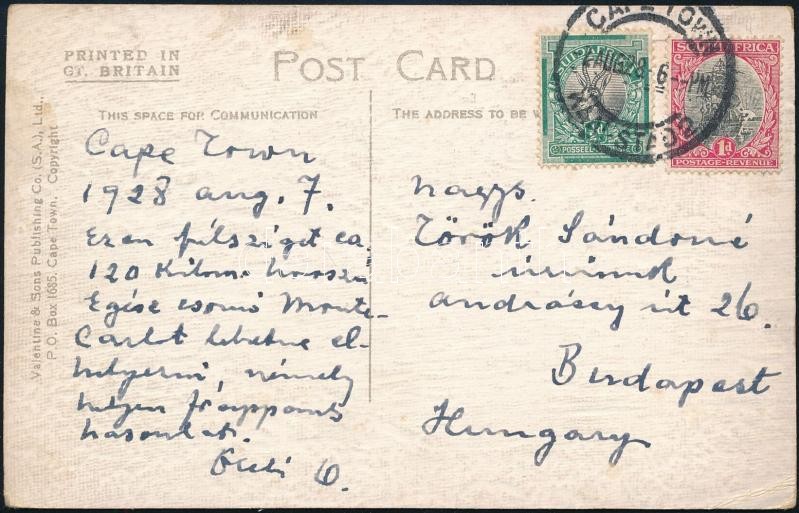 PRINTED IN
GT. BRITAIN
POST CARD
THIS SPACE FOR COMMUNICATION
THE ADDRESS TO BE
CAPE TOWN
AUG 28 6 - PM
SOUTH AFRICA
POSSEEL
1d
POSTAGE-REVENUE
Valentine & Sons Publishing Co. (S.A.), Ltd.,
P.O. Box 1685, Cape Town. Copyright
Cape Town
1928 aug. 7.
Ezen félsziget ca.
120 Kilom. hosszu
Egész csomó Monte-
Carlot lehetne el-
helyezni, némely
helyen frappants
hasonlat.
Nagys.
Török Sándorné
úrinnek
andrássy út 26.
Budapest
Hungary